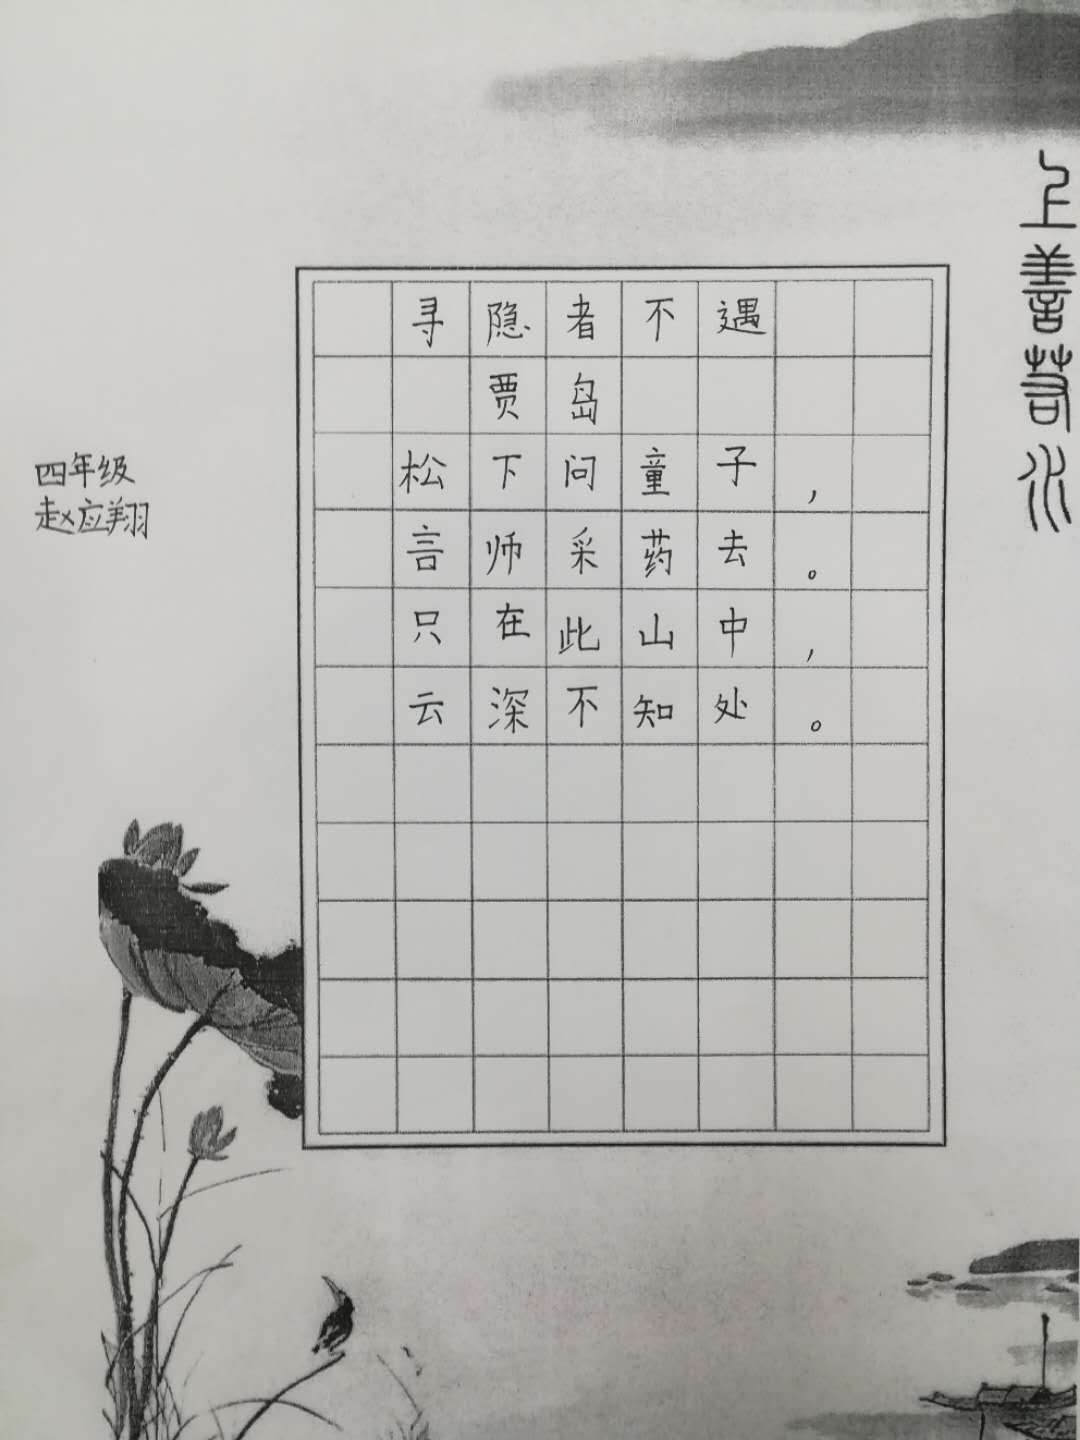 上善若水
寻隐者不遇
贾岛
松下问童子，
言师采药去。
只在此山中，
云深不知处。
四年级
赵应翔